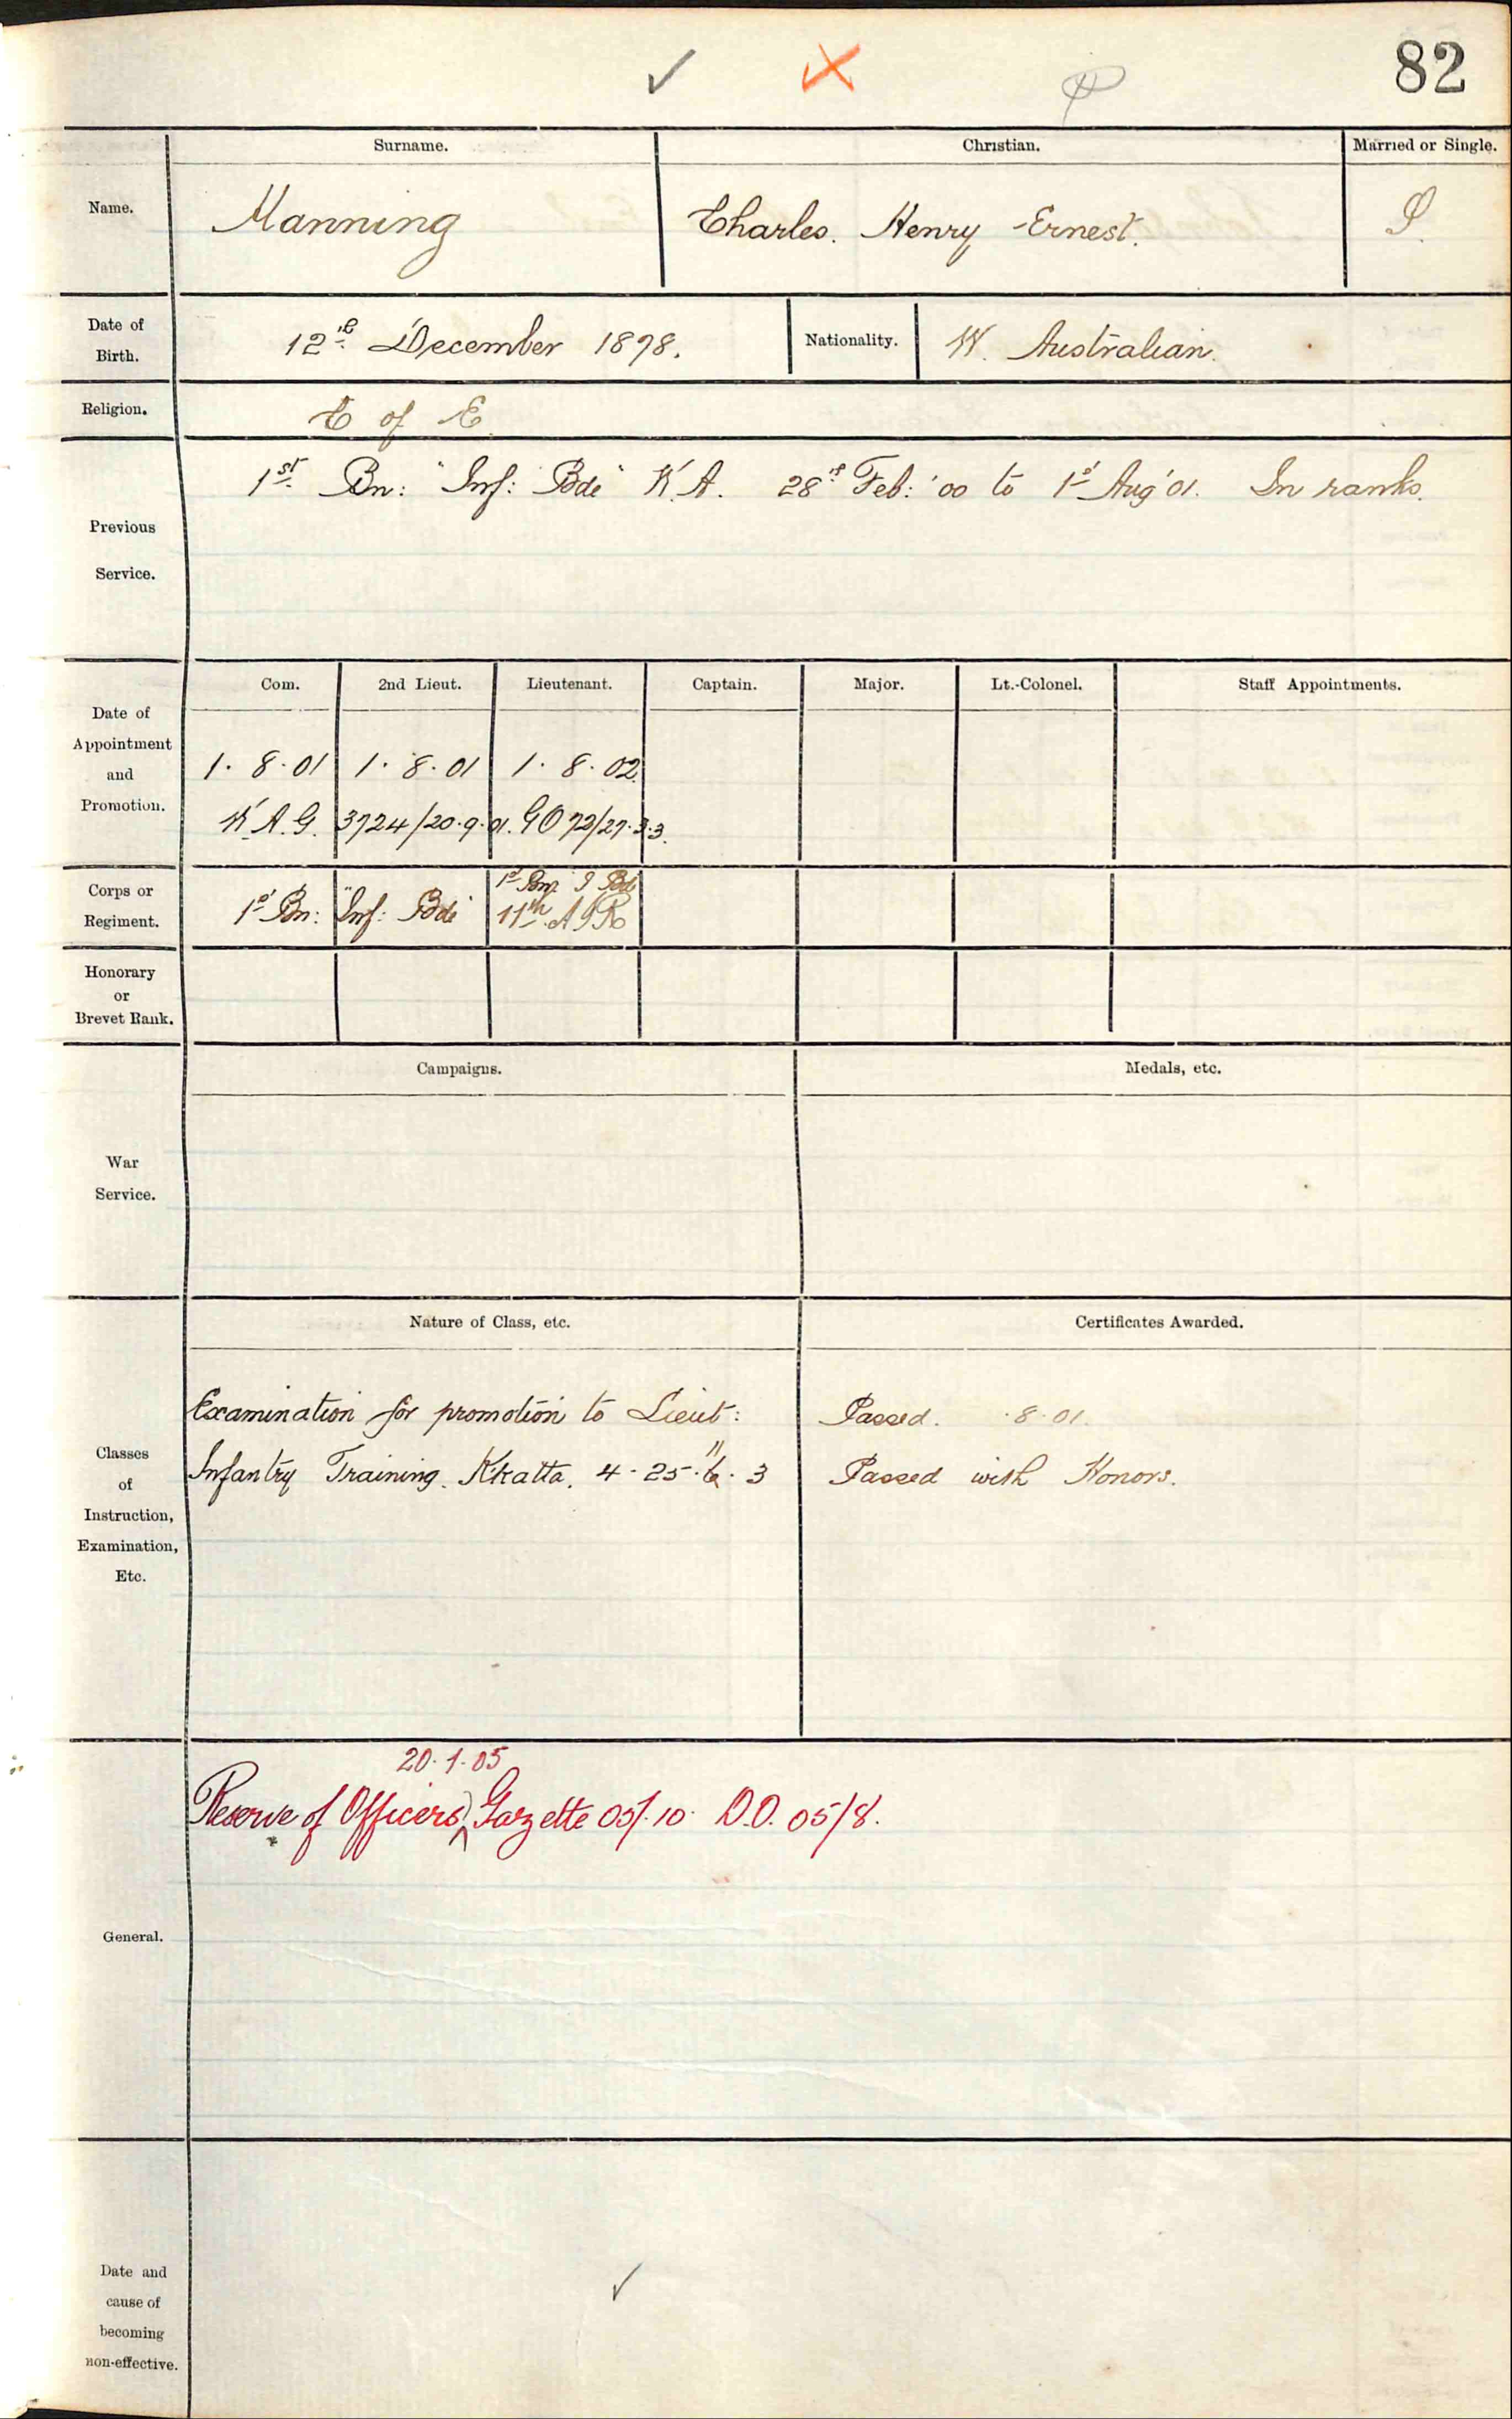 82
Surname. Christian. Married or Single.
Name. Manning Charles. Henry Ernest. S.
Date of Birth. 12th December 1878. Nationality. W. Australian.
Religion. C of E
Previous Service. 1st Bn: "Inf: Bde" W.A. 28th Feb: '00 to 1st Aug '01. In ranks.
Com. 2nd Lieut. Lieutenant. Captain. Major. Lt.-Colonel. Staff Appointments.
Date of Appointment and Promotion.
1. 8. 01 1. 8. 01 1. 8. 02
W.A.G. 3724/20.9.01. GO 72/27.3.3.
1st Bn I Bde
Corps or Regiment. 1st Bn: "Inf: Bde" 11th A I R
Honorary or Brevet Rank.
Campaigns. Medals, etc.
War Service.
Nature of Class, etc. Certificates Awarded.
Classes of Instruction, Examination, Etc.
Examination for promotion to Lieut: Passed. .8.01.
Infantry Training. K'katta. 4-25. 11. 3 Passed with Honors.
20.1.05
Reserve of Officers Gazette 05/.10. D.O. 05/8.
General.
Date and cause of becoming non-effective.